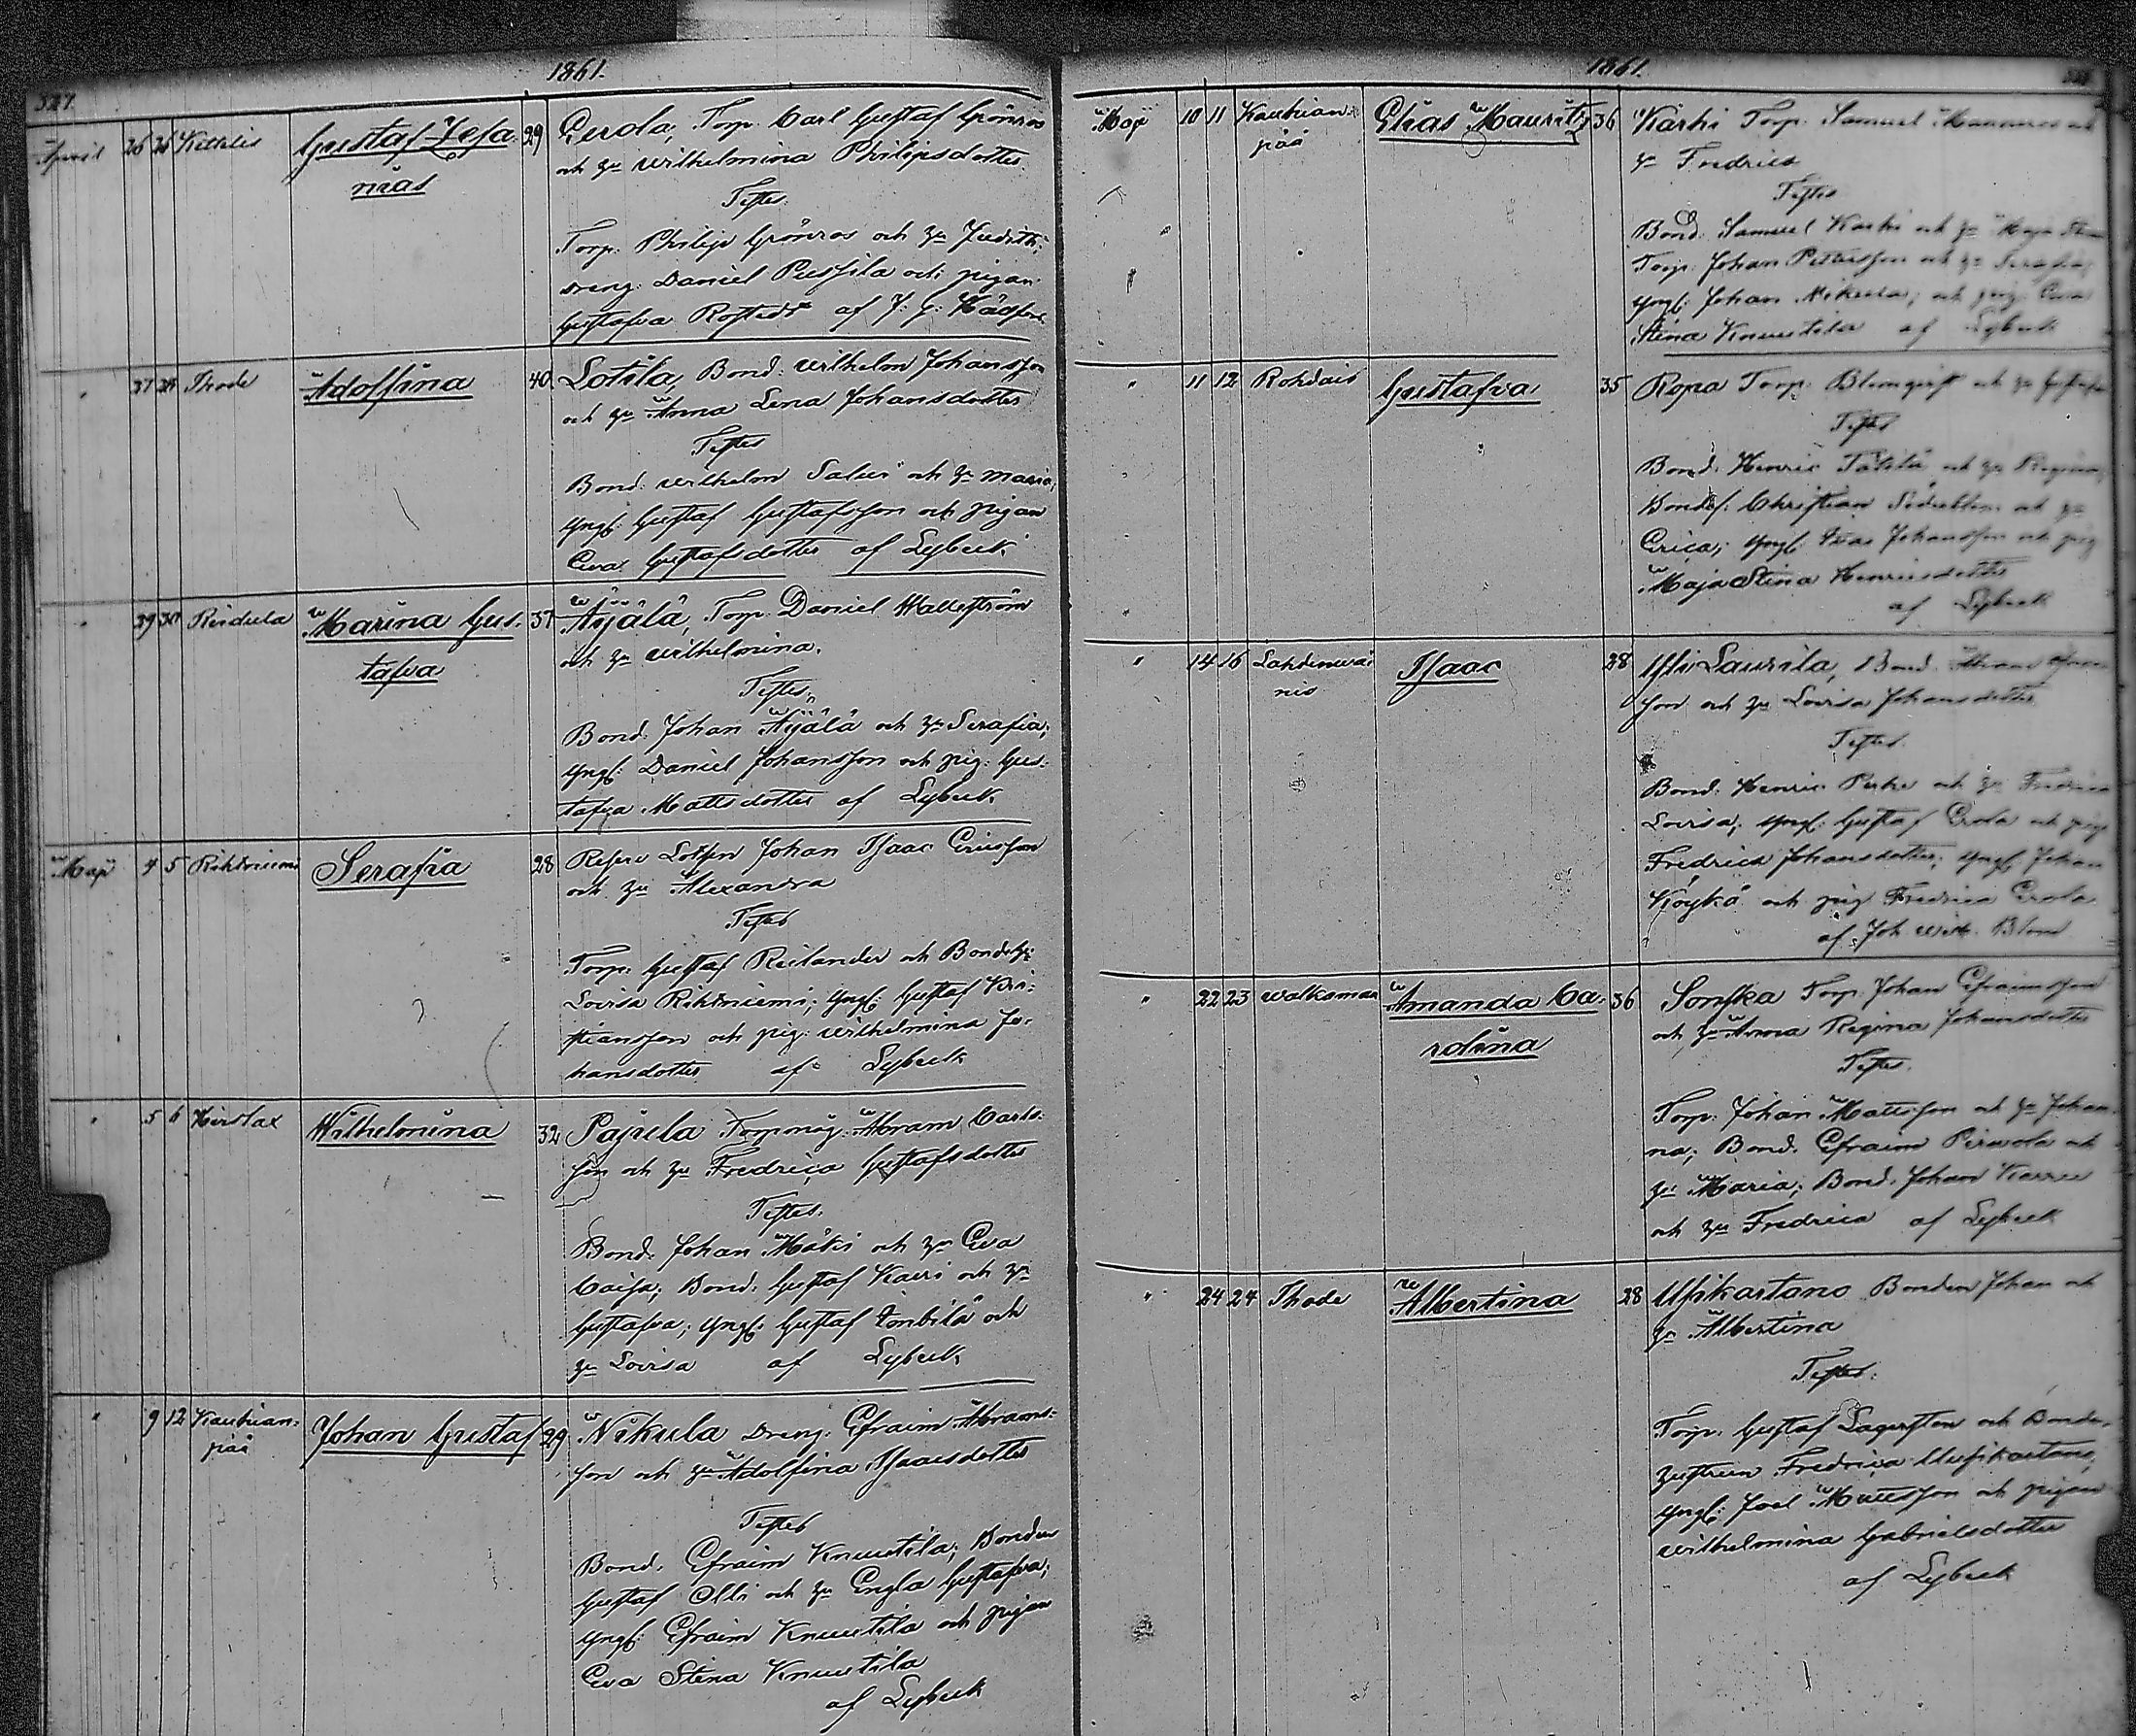 1861.
327.
April 26 26 Kettelis Gustaf Zefa- 29 Eerola, Torp. Carl Gustaf Grönros
nias och hu Wilhelmina Philipsdotter.
Testes.
Torp. Philip Grönros och hu Judith;
dreng. Daniel Pussila och pigan
Gustafva Rostedt af J. G.
" 27 28 Thode Adolfina 40 Lotila, Bond. Wilhelm Johansson
och hu Anna Lena Johansdotter
Testes
Bond. Wilhelm Salvi och hu Maria;
yngl. Gustaf Gustafsson och pigan
Eva Gustafsdotter af Lybeck.
" 29 30 Reidula Marina Gus- 37 Äyälä, Torp. Daniel Wallström
tafva och hu Wilhelmina.
Testes,
Bond. Johan Äyälä och hu Serafia;
yngl. Daniel Johansson och pig. Gus-
tafva Mattsdotter af Lybeck.
Maj 4 5 Rihtniemi Serafia 28 Reserv Lotsen Johan Isaac Ericsson
och hu Alexandra
Testes
Torp. Gustaf Reilander och Bondehu
Lovisa Rihtniemi; yngl. Gustaf Kri-
stiansson och pig. Wilhelmina Jo-
hansdotter af Lybeck
" 5 6 Hirslax Wilhelmina 32 Pajula Torpmåg. Abram Carls-
son och hu Fredrica Gustafsdotter
Testes.
Bond. Johan Mäki och hu Eva
Caisa; Bond. Gustaf Kauri och hu
Gustafva; yngl. Gustaf Tonbila och
hu Lovisa af Lybeck
" 9 12 Kaukian- Johan Gustaf 29 Nikula Dreng. Efraim Abrams-
pää son och hu Adolfina Isaacsdotter
Testes
Bond. Efraim Knuutila; Bonden
Gustaf Olli och hu Engla Gustafva;
yngl. Efraim Knuutila och pigan
Eva Stina Knuutila
af Lybeck
1861.
328
Maj 10 11 Kaukian- Elias Mauritz 36 Karhi Torp. Samuel
pää hu Fredrica
Testes
Bond. Samuel Karhi och hu Maja Stina
Torp. Johan Pettersson och hu Serafia;
yngl. Johan Mikula; och pig. Eva
Stina Knuutila af Lybeck
" 11 12 Rohdais Gustafva 35 Ropa Torp. Blomqvist och hu Gustafva
Testes
Bond. Henric Tätilä och hu Regina;
Bondes. Christian och hu
Erica; yngl. Isac Johansson och pig
Maja Stina Henricsdotter
af Lybeck
" 14 16 Lahdinvai- Isaac 28 Yli Laurila, Bond.
nio son och hu Lovisa Johansdotter
Testes.
Bond. Henric och hu Fredrica
Lovisa; yngl. Gustaf Erola och pig
Fredrica Johansdotter; yngl. Johan
Köykä och pig Fredrica Erola
af Joh. Wilh. Blom
" 22 23 Walksmaa Amanda Ca- 36 Sonska Torp. Johan Efraimsson
rolina och hu Anna Regina Johansdotter
Testes.
Torp. Johan Mattsson och hu Johan-
na; Bond. Efraim Pirvola och
hu Maria; Bond. Johan Karru
och hu Fredrica af Lybeck
" 24 24 Thode Albertina 28 Usikartano Bonden Johan och
hu Albertina
Testes.
Torp. Gustaf Lagersten och Bonde-
hustrun Fredrica Uusikartano,
yngl. Joel Mattsson och pigan
Wilhelmina Gabrielsdotter
af Lybeck